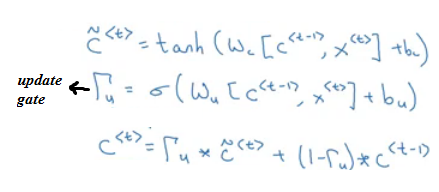 c̃^<t> = tanh(W_c[c^<t-1>, x^<t>] + b_c)
update gate ← Γ_u = σ(W_u[c^<t-1>, x^<t>] + b_u)
c^<t> = Γ_u * c̃^<t> + (1-Γ_u) * c^<t-1>